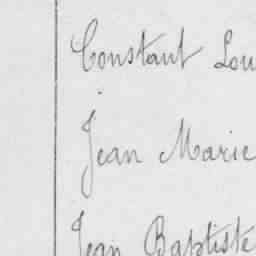 Constant Lou
Jean Marie
Jean Baptiste